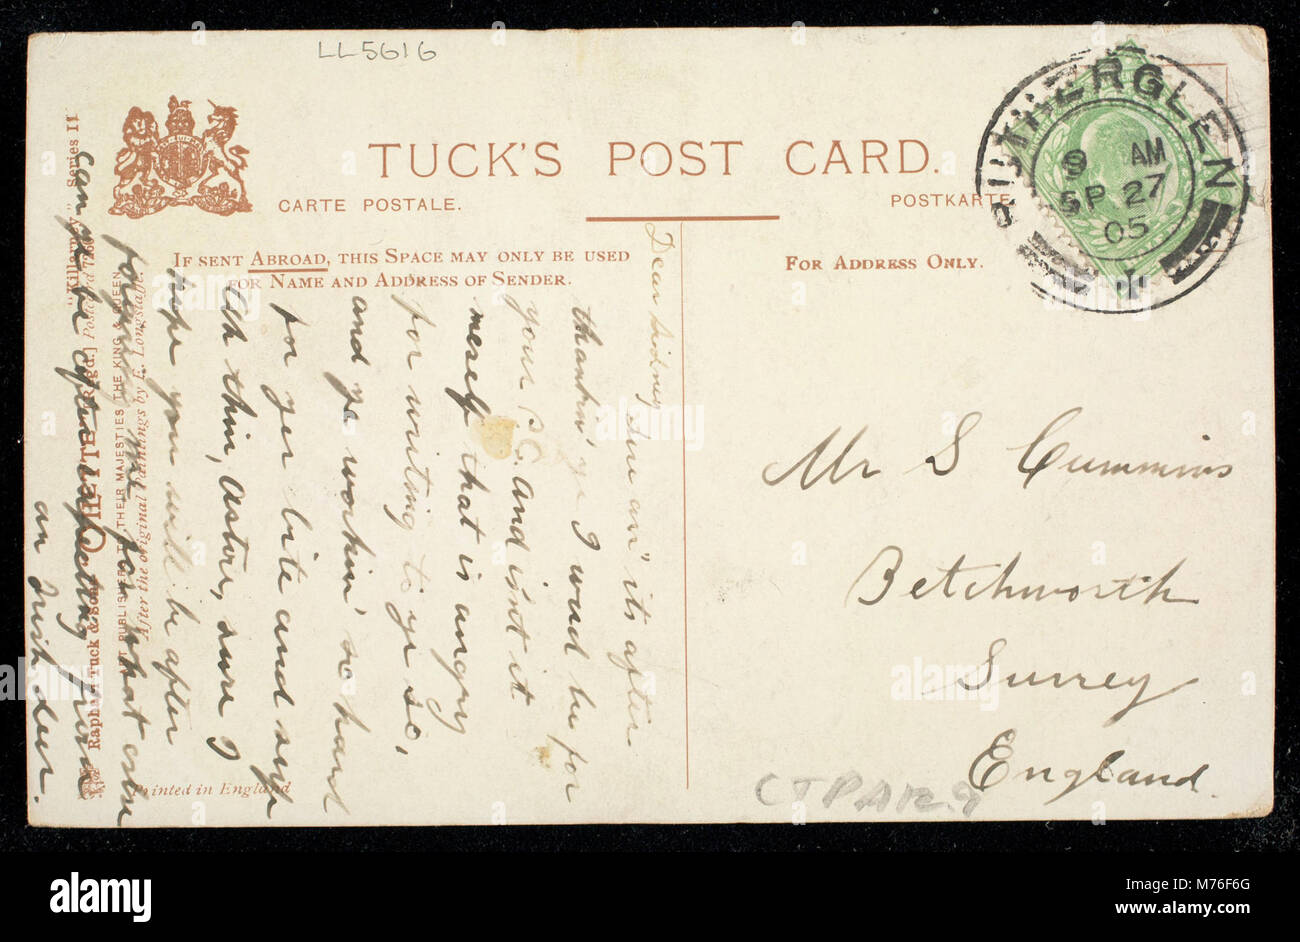 LL5616
TUCK'S POST CARD.
CARTE POSTALE.
POSTKARTE
IF SENT ABROAD, THIS SPACE MAY ONLY BE USED
FOR NAME AND ADDRESS OF SENDER.
FOR ADDRESS ONLY.
RUTHERGLEN
9 AM
SP 27
05
Dear Sidney Sure an' its after
thankin' ye I wud be for
your P.C. and isnt it
meself that is angry
for writing to ye so,
and ye workin' so hard
for yer bite and sup
Och thin, astore, sure I
hope you will be after
me for what
can ye be after expecting from
an Irish deer.
Mr S Cummins
Betchworth
Surrey
England.
CTPAR9
"Killarney" Series II
Postcard
After the original Paintings by E. Longstaffe.
ART PUBLISHERS TO THEIR MAJESTIES THE KING & QUEEN
Raphael Tuck & Sons
Printed in England
alamy
Image ID: M76F6G
www.alamy.com